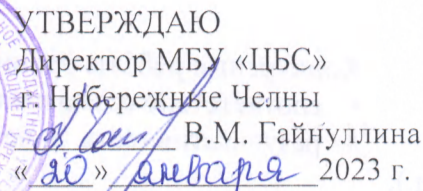 УТВЕРЖДАЮ
Директор МБУ «ЦБС»
г. Набережные Челны
В.М. Гайнуллина
«20» января 2023 г.